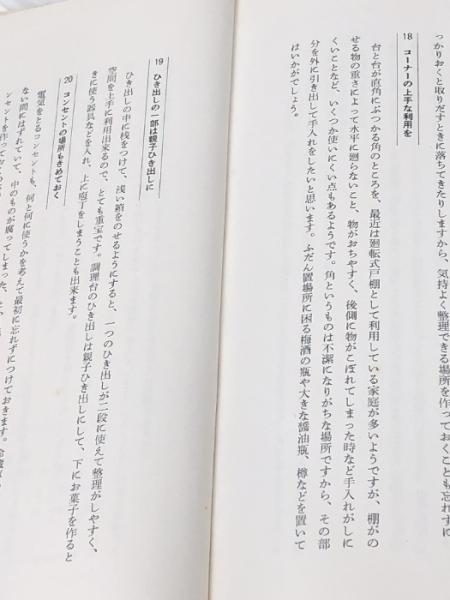 っかりおくと取りだすときに落ちてきたりしますから、気持よく整理できる場所を作っておくことも忘れずに
18 コーナーの上手な利用を
台と台が直角にぶつかる角のところを、最近は廻転式戸棚として利用している家庭が多いようですが、棚がの
せる物の重さによって水平に廻らないこと、物がおちやすく、後側に物がこぼれてしまった時など手入れがしに
くいことなど、いくつか使いにくい点もあるようです。角というものは不潔になりがちな場所ですから、その部
分を外に引き出して手入れをしたいと思います。ふだん置場所に困る梅酒の瓶や大きな醤油瓶、樽などを置いて
はいかがでしょう。
19 ひき出しの一部は親子ひき出しに
ひき出しの中に桟をつけて、浅い箱をのせるようにすると、一つのひき出しが二段に使えて整理がしやすく、
空間を上手に利用出来るので、とても重宝です。調理台のひき出しは親子ひき出しにして、下にお菓子を作ると
きに使う器具などを入れ、上に庖丁をしまうことも出来ます。
20 コンセントの場所もきめておく
電気をとるコンセントも、何と何に使うかを考えて最初に忘れずにつけておきます。
ない間にはずれていて、中のものが腐ってしまった、
ンセントを作って